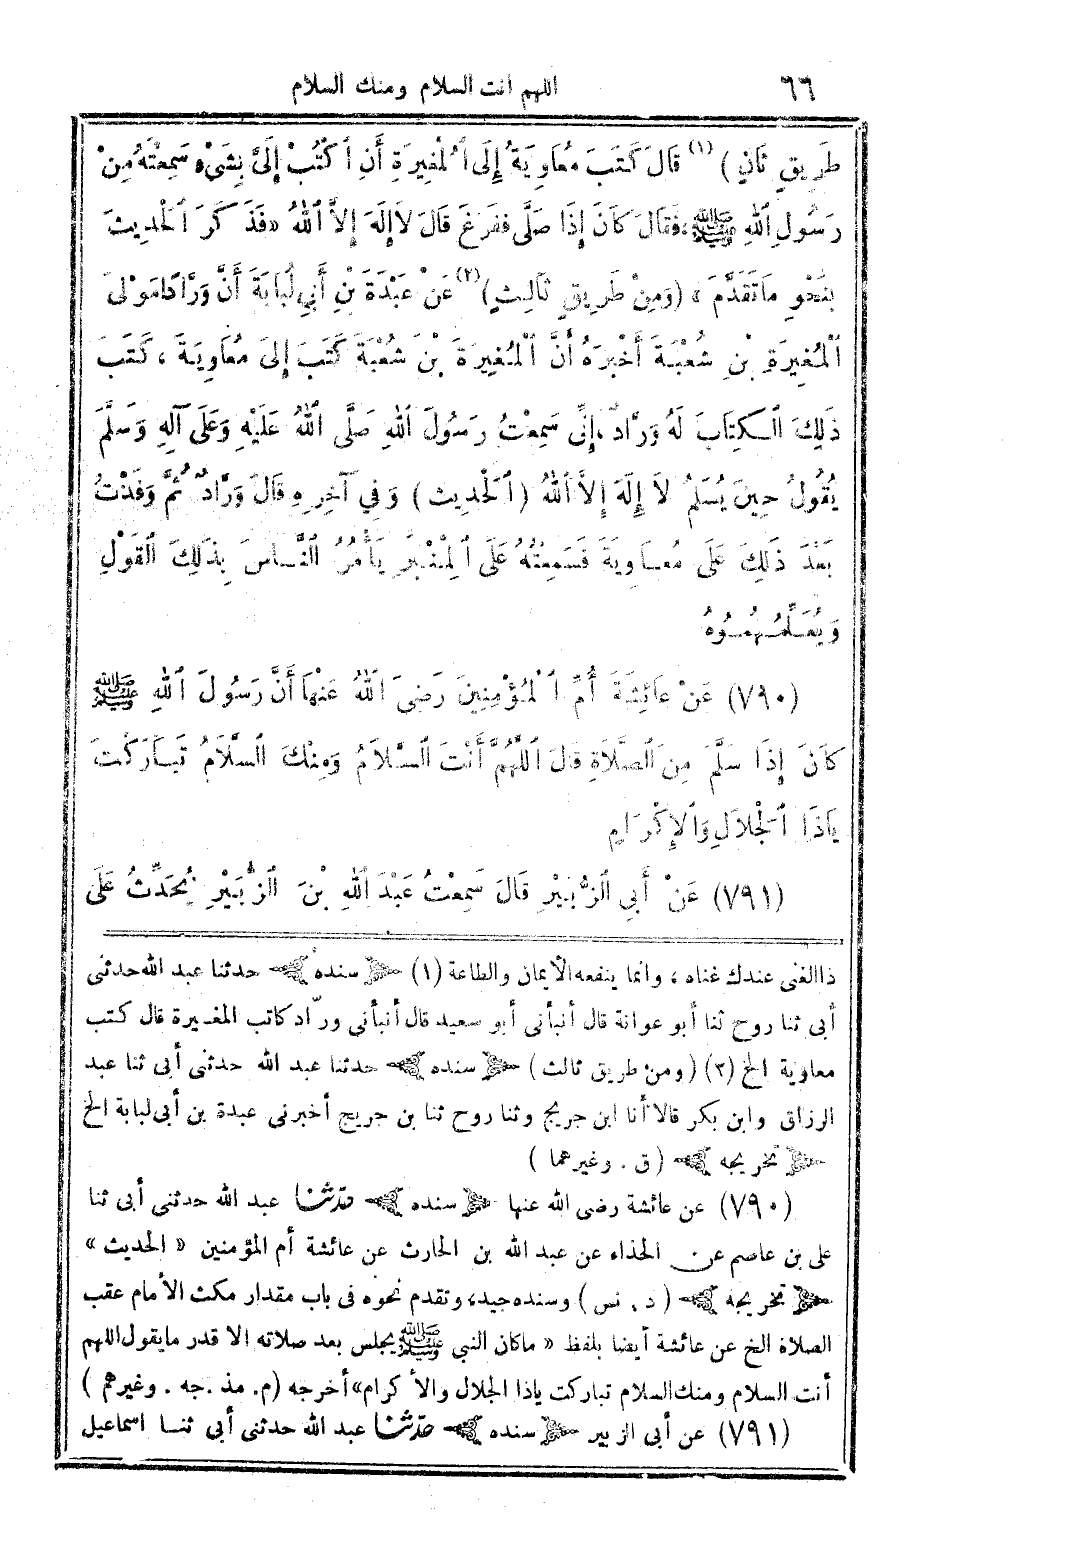 ٦٦ اللهم أنت السلام ومنك السلام
طَرِيقٍ ثَانٍ ) (١) قَالَ كَتَبَ مُعَاوِيَةُ إِلَى الْمُغِيرَةِ أَنِ اكْتُبْ إِلَيَّ بِشَيْءٍ سَمِعْتَهُ مِنْ
رَسُولِ اللهِ ﷺ، فَقَالَ كَانَ إِذَا صَلَّى فَفَرَغَ قَالَ لاَ إِلَهَ إِلاَّ اللهُ «فَذَكَرَ الْحَدِيثَ
بِنَحْوِ مَا تَقَدَّمَ » (وَمِنْ طَرِيقٍ ثَالِثٍ) (٢) عَنْ عَبْدَةَ بْنِ أَبِي لُبَابَةَ أَنَّ وَرَّادًا مَوْلَى
الْمُغِيرَةِ بْنِ شُعْبَةَ أَخْبَرَهُ أَنَّ الْمُغِيرَةَ بْنَ شُعْبَةَ كَتَبَ إِلَى مُعَاوِيَةَ ، كَتَبَ
ذَلِكَ الْكِتَابَ لَهُ وَرَّادٌ، إِنِّي سَمِعْتُ رَسُولَ اللهِ صَلَّى اللهُ عَلَيْهِ وَعَلَى آلِهِ وَسَلَّمَ
يَقُولُ حِينَ يُسَلِّمُ لاَ إِلَهَ إِلاَّ اللهُ (الْحَدِيثَ) وَفِي آخِرِهِ قَالَ وَرَّادٌ ثُمَّ وَفَدْتُ
بَعْدَ ذَلِكَ عَلَى مُعَاوِيَةَ فَسَمِعْتُهُ عَلَى الْمِنْبَرِ يَأْمُرُ النَّاسَ بِذَلِكَ الْقَوْلِ
وَيُعَلِّمُهُمُوهُ
(٧٩٠) عَنْ عَائِشَةَ أُمِّ الْمُؤْمِنِينَ رَضِيَ اللهُ عَنْهَا أَنَّ رَسُولَ اللهِ ﷺ
كَانَ إِذَا سَلَّمَ مِنَ الصَّلاَةِ قَالَ اللَّهُمَّ أَنْتَ السَّلاَمُ وَمِنْكَ السَّلاَمُ تَبَارَكْتَ
يَاذَا الْجَلاَلِ وَالإِكْرَامِ
(٧٩١) عَنْ أَبِي الزُّبَيْرِ قَالَ سَمِعْتُ عَبْدَ اللهِ بْنَ الزُّبَيْرِ يُحَدِّثُ عَلَى
ذا الغنى عندك غناه ، وانما ينفعه الأيمان والطاعة (١) سنده حدثنا عبد الله حدثنى
أبى ثنا روح ثنا أبو عوانة قال أنبأنى أبو سعيد قال أنبأنى ورّاد كاتب المغيرة قال كتب
معاوية الخ (٢) (ومن طريق ثالث) سنده حدثنا عبد الله حدثنى أبى ثنا عبد
الرزاق وابن بكر قالا أنا ابن جريج وثنا روح ثنا بن جريج أخبرنى عبدة بن أبى لبابة الخ
تخريجه (ق . وغيرهما )
(٧٩٠) عن عائشة رضى الله عنها سنده حدّثنا عبد الله حدثنى أبى ثنا
على بن عاصم عن الحذاء عن عبد الله بن الحارث عن عائشة أم المؤمنين « الحديث »
تخريجه ( د . نس ) وسنده جيد، وتقدم نحوه فى باب مقدار مكث الأمام عقب
الصلاة الخ عن عائشة أيضا بلفظ « ماكان النبى ﷺ يجلس بعد صلاته الا قدر ما يقول اللهم
أنت السلام ومنك السلام تباركت ياذا الجلال والأكرام» أخرجه (م. مذ .جه . وغيرهم )
(٧٩١) عن أبى الزبير سنده حدّثنا عبد الله حدثنى أبى ثنـا اسماعيل